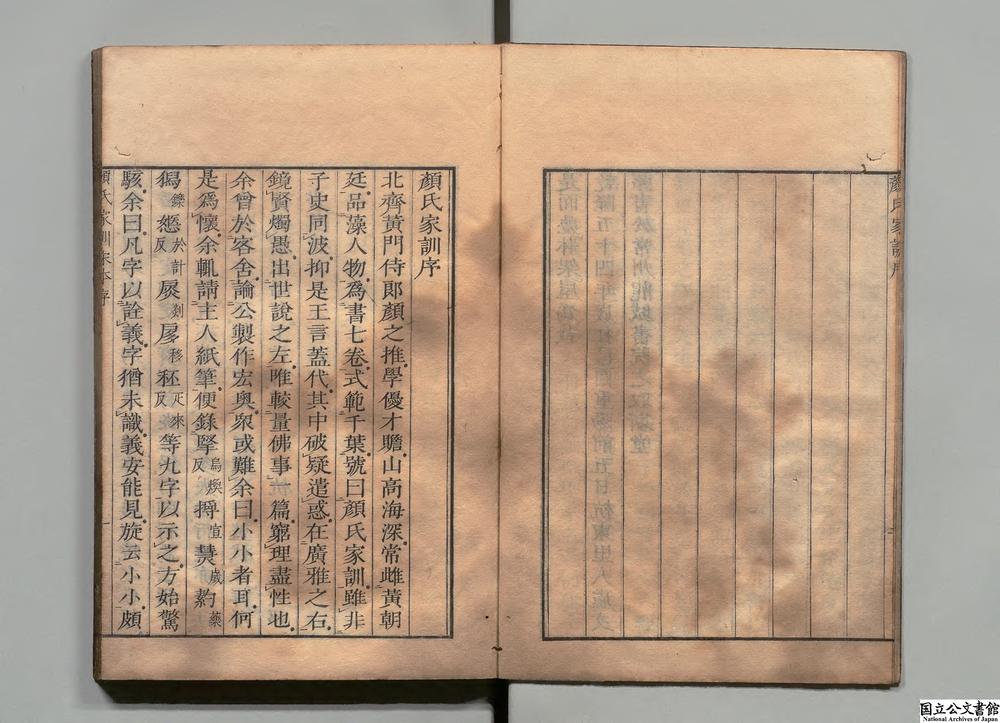 顔氏家訓序
顔氏家訓序
北齊黃門侍郎顔之推學優才贍山高海深常雌黃朝
廷品藻人物爲書七卷式範千葉號曰顔氏家訓雖非
子史同波抑是王言蓋代其中破疑遣惑在廣雅之右
鏡賢燭愚出世說之左唯較量佛事一篇窮理盡性也
余曾於客舍論公製作宏奥衆或難余曰小小者耳何
是爲懷余輒請主人紙筆便錄掔烏煥反㨵宣㷸歲𤓤藥
獡鑠㥷於計反扊剡扅移秠疋來反等九字以示之方始驚
駭余曰凡字以詮義字猶未識義安能見旋云小小頗
顔氏家訓宋本序 一
国立公文書館
National Archives of Japan